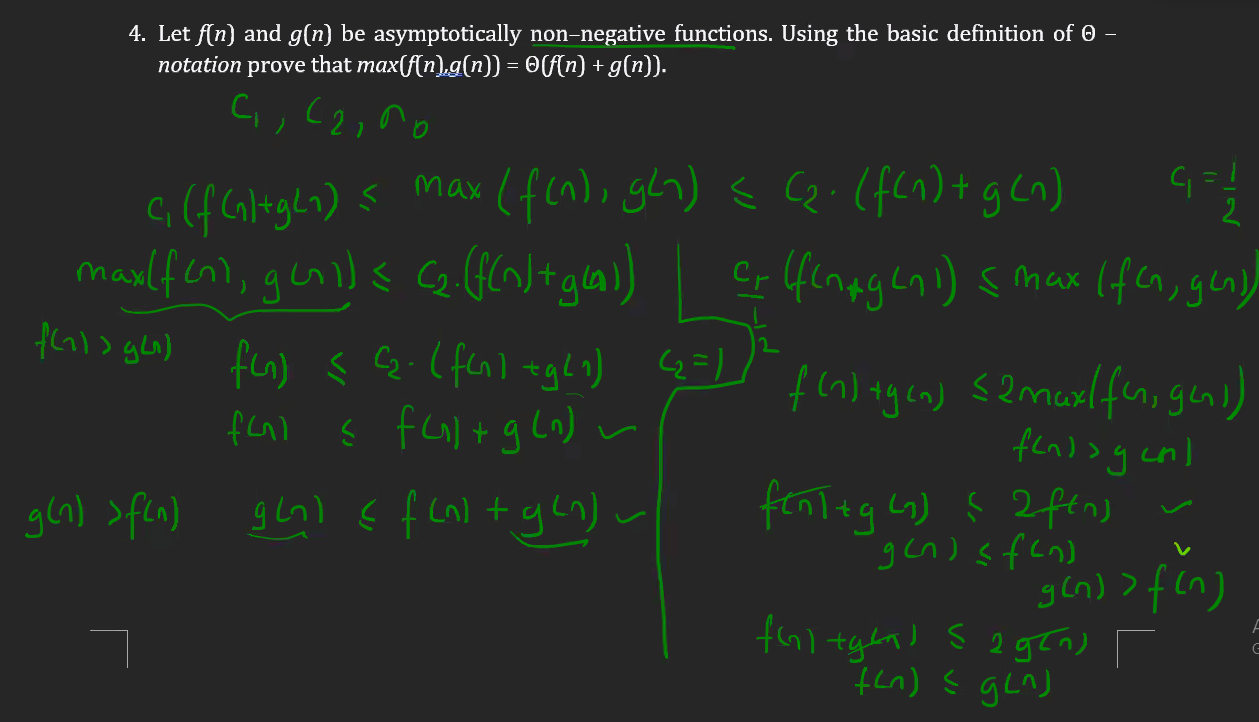 4. Let f(n) and g(n) be asymptotically non–negative functions. Using the basic definition of Θ –
notation prove that max(f(n),g(n)) = Θ(f(n) + g(n)).
C₁, C₂, n₀
C₁(f(n)+g(n)) ≤ max(f(n), g(n)) ≤ C₂·(f(n)+g(n))
C₁ = 1/2
max(f(n), g(n)) ≤ C₂·(f(n)+g(n))
f(n) > g(n)
f(n) ≤ C₂·(f(n)+g(n)) C₂=1
f(n) ≤ f(n)+g(n) ✓
g(n) > f(n) g(n) ≤ f(n)+g(n) ✓
C₁·(f(n+g(n)) ≤ max(f(n, g(n))
1/2
f(n)+g(n) ≤ 2max(f(n, g(n))
f(n) > g(n)
f(n)+g(n) ≤ 2f(n) ✓
g(n) ≤ f(n) ✓
g(n) > f(n)
f(n)+g(n) ≤ 2g(n)
f(n) ≤ g(n)